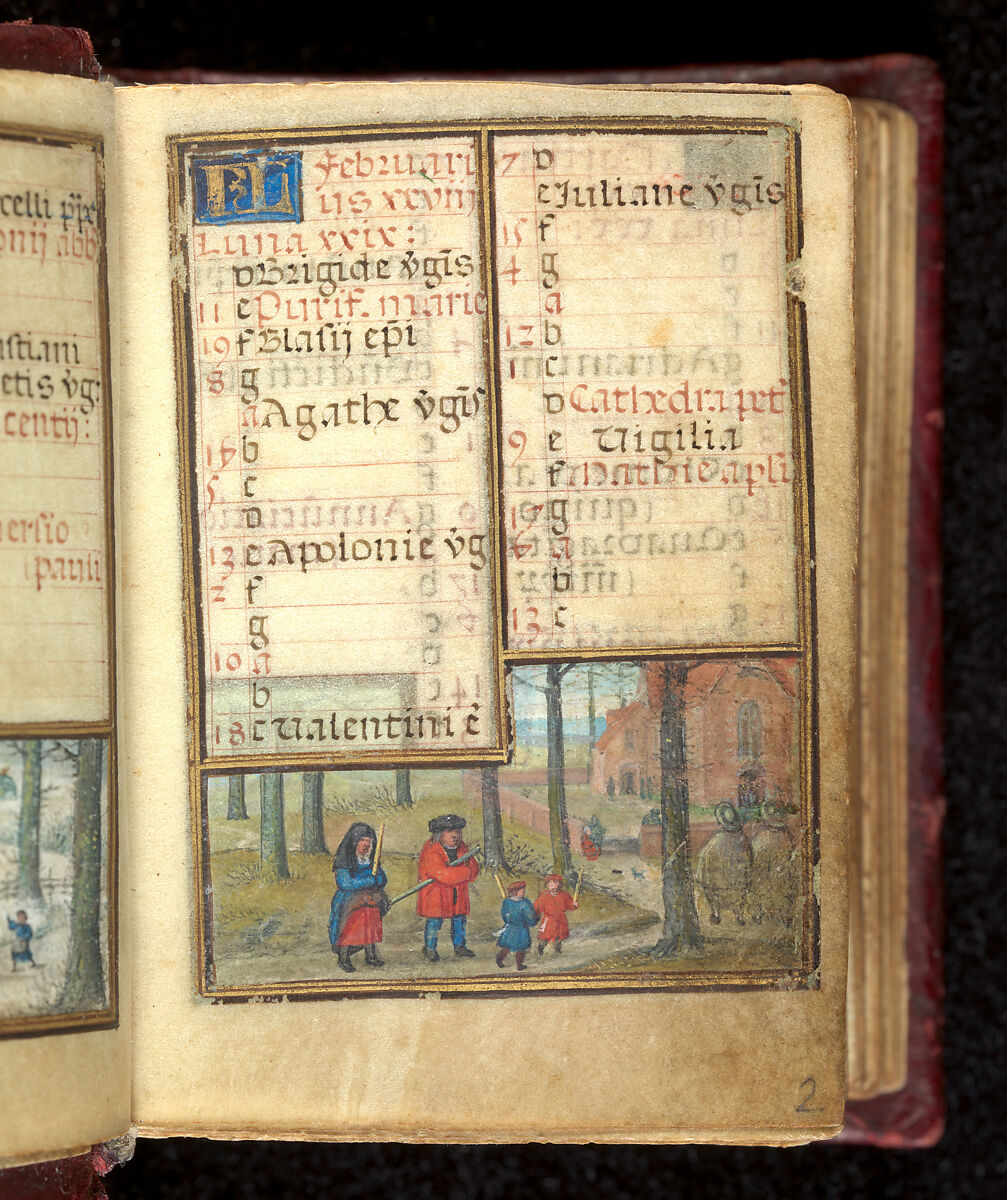 celli
onij abb
astiani
etis v̄g:
centij:
versio
pauli
KL Februari
us xxviij
Luna xxix:
d Brigide v̄gīs
11 e Purif. marie
19 f Blasij ep̄i
8 g
a Agathe v̄gīs
16 b
5 c
d
13 e Apolonie v̄g
2 f
g
10 a
b
18 c Valentini ē
7 d
e Iuliane v̄gīs
15 f
4 g
a
12 b
1 c
d Cathedra pet
9 e Vigilia
f Mathie apli
17 g
6 a
b
13 c
2